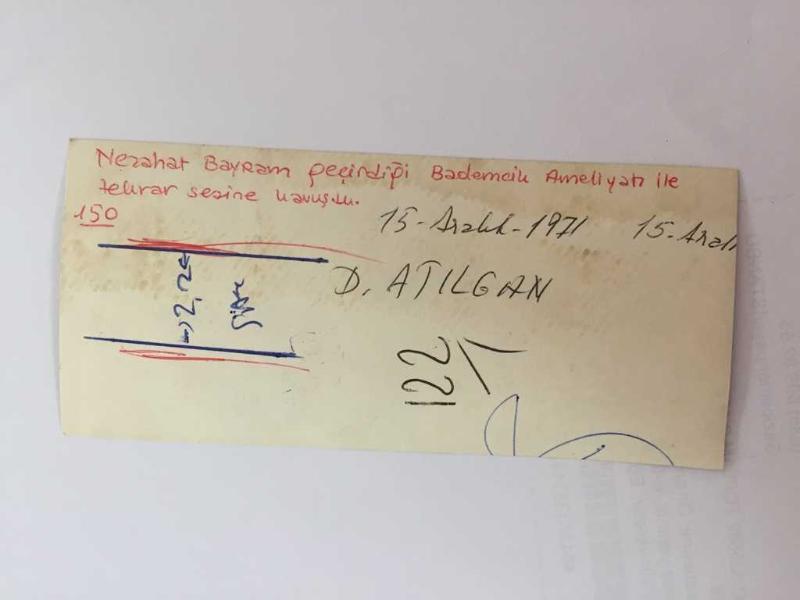 Nezahat Bayram geçirdiği Bademcik Ameliyatı ile
tekrar sesine kavuştu.
150
15-Aralık-1971 15-Aralı
D. ATILGAN
122/1